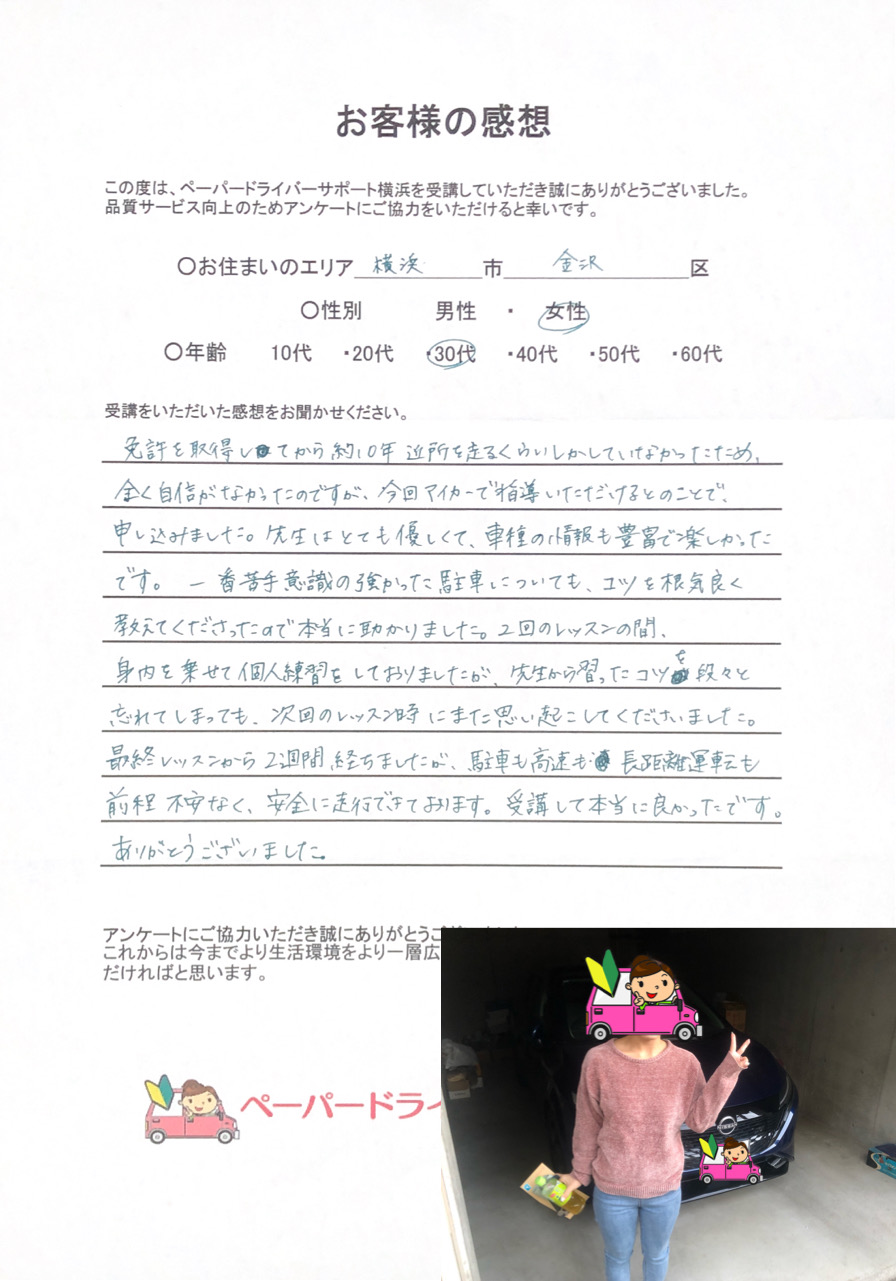 お客様の感想
この度は、ペーパードライバーサポート横浜を受講していただき誠にありがとうございました。
品質サービス向上のためアンケートにご協力をいただけると幸いです。
〇お住まいのエリア 横浜 市 金沢 区
〇性別 男性 ・ 女性
〇年齢 10代 ・20代 ・30代 ・40代 ・50代 ・60代
受講をいただいた感想をお聞かせください。
免許を取得してから約10年 近所を走るくらいしかしていなかったため、
全く自信がなかったのですが、今回マイカーで指導いただけるとのことで、
申し込みました。先生はとても優しくて、車種の情報も豊富で楽しかった
です。一番苦手意識の強かった駐車についても、コツを根気良く
教えてくださったので本当に助かりました。2回のレッスンの間、
身内を乗せて個人練習をしておりましたが、先生から習ったコツを段々と
忘れてしまっても、次回のレッスン時にまた思い起こしてくださいました。
最終レッスンから2週間経ちましたが、駐車も高速も長距離運転も
前程 不安なく、安全に走行できております。受講して本当に良かったです。
ありがとうございました。
アンケートにご協力いただき誠にありがとうご
これからは今までより生活環境をより一層広
だければと思います。
ペーパードライ
NISSAN